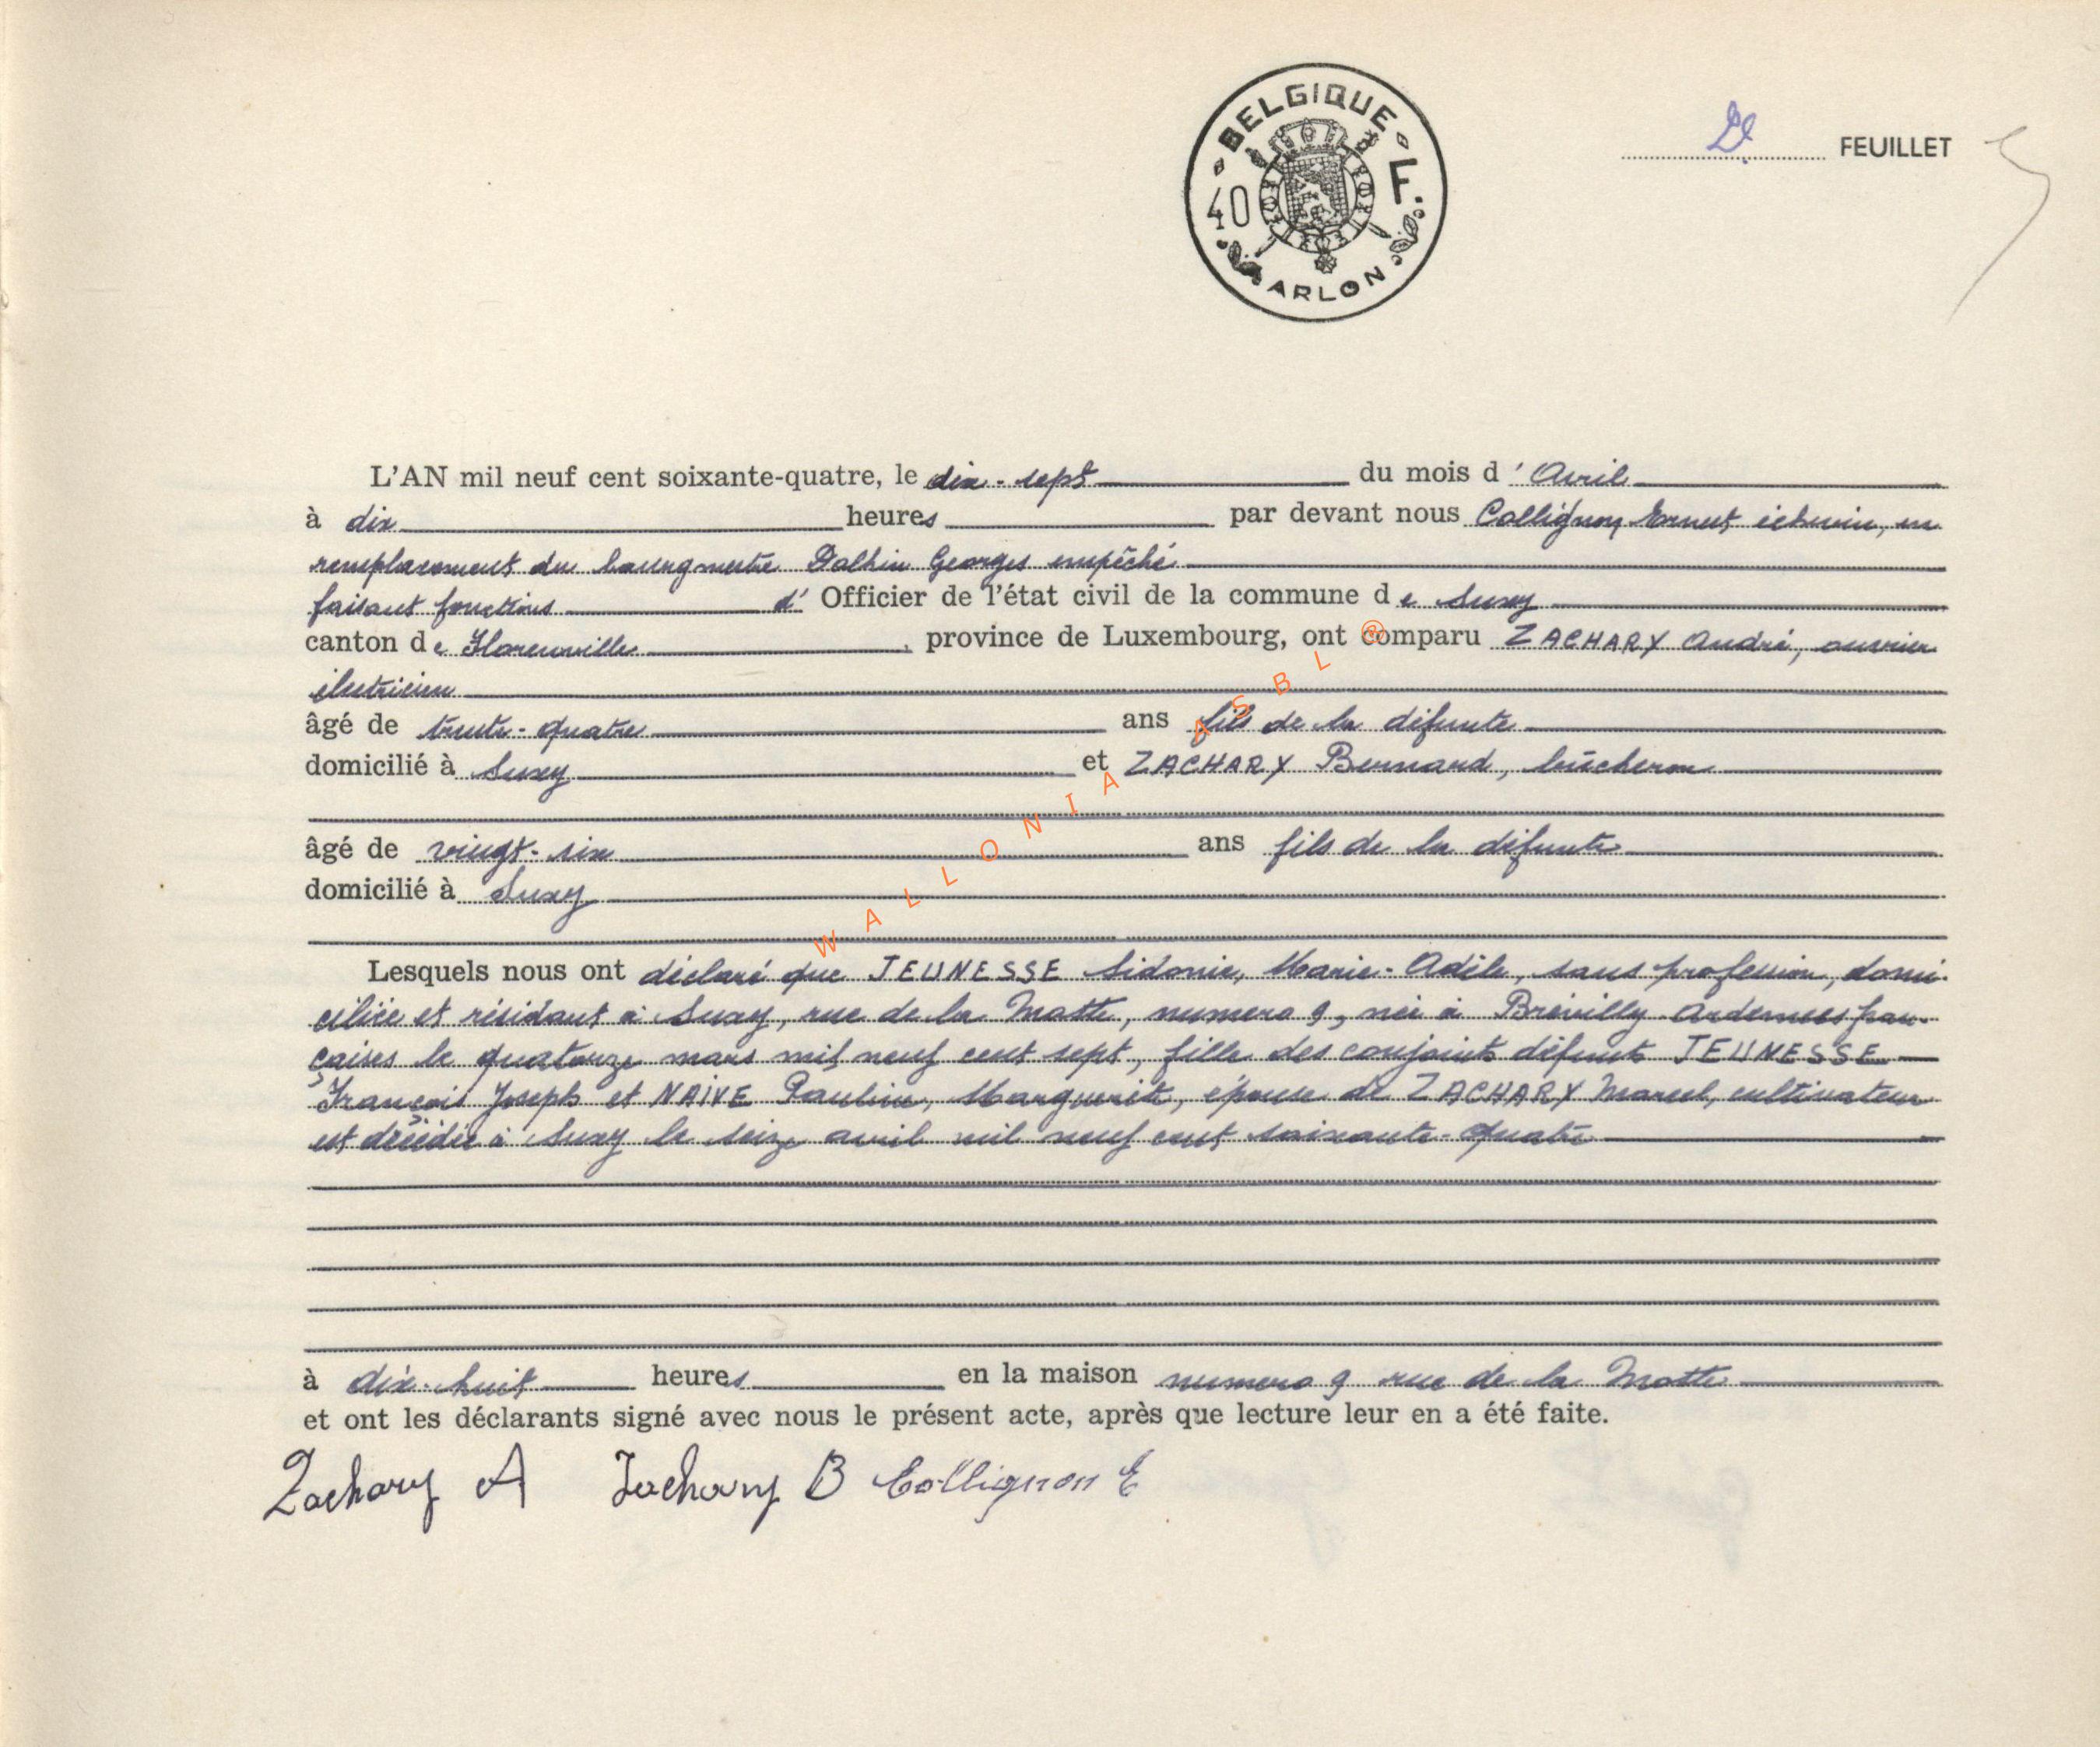 BELGIQUE
40 F.
ARLON
2e FEUILLET
L'AN mil neuf cent soixante-quatre, le dix-sept du mois d'Avril
à dix heures par devant nous Collignon Ernest échevin, en
remplacement du bourgmestre Dalhin Georges empêché
faisant fonctions d'Officier de l'état civil de la commune de Suxy
canton de Florenville, province de Luxembourg, ont comparu ZACHARY André, ouvrier
électricien
âgé de trente-quatre ans fils de la défunte
domicilié à Suxy et ZACHARY Bernard, bûcheron
âgé de vingt-six ans fils de la défunte
domicilié à Suxy
Lesquels nous ont déclaré que JEUNESSE Sidonie, Marie-Adèle, sans profession, domi-
ciliée et résidant à Suxy, rue de la Motte, numero 9, née à Brévilly Ardennes fran-
çaises le quatorze mars mil neuf cent sept, fille des conjoints défunts JEUNESSE
François Joseph et NAIVE Pauline, Marguerite, épouse de ZACHARY Marcel, cultivateur
est décédée à Suxy le seize avril mil neuf cent soixante-quatre
à dix-huit heures en la maison numero 9 rue de la Motte
et ont les déclarants signé avec nous le présent acte, après que lecture leur en a été faite.
Zachary A Zachary B Collignon E
WALLONIA ASBL ®